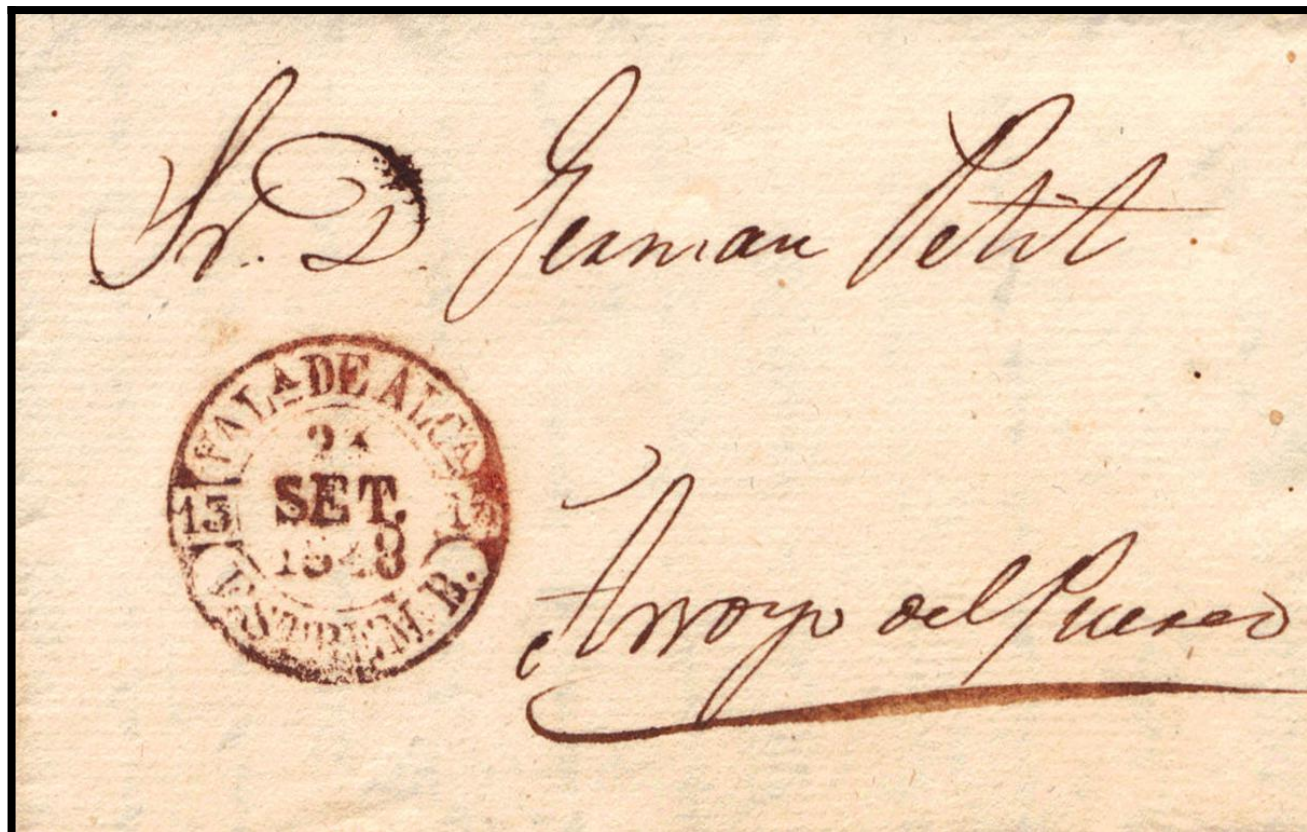 Sr. D. German Petit
VALA DE ALCA
SET.
1848
13
ESTREM. B.
Arroyo del Puerco